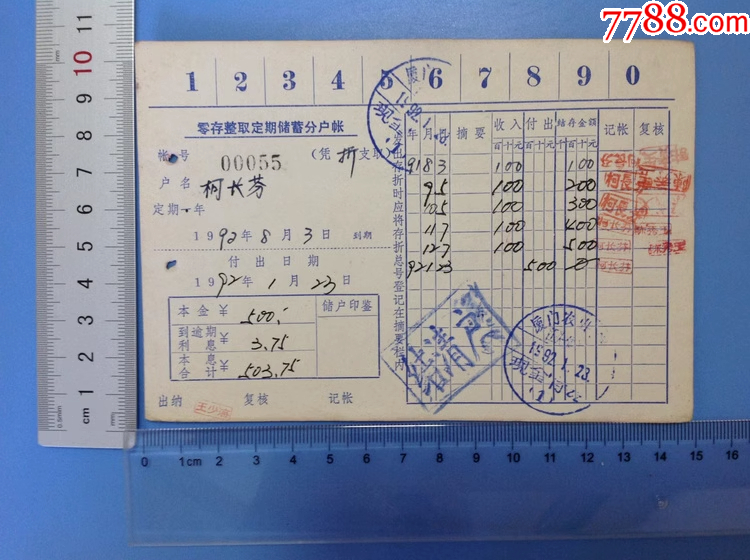 7788.com
1 2 3 4 5 6 7 8 9 0
零存整取定期储蓄分户帐
帐号 00055 (凭 折 支取)
户名 柯长芬
定期 年
1992年8月3日 到期
付出日期
1992年1月23日
本金¥ 500.- 储户印鉴
到逾期利息¥ 3.75
本息合计¥ 503.75
出纳 复核 记帐
王少海
往存折时应将存折总号登记在摘要栏内
年 月 日 摘要 收入 付出 结存金额 记帐 复核
百十元 百十元 百十元
91 8 3 100 100
9 5 100 200
10 5 100 300
11 7 100 400
12 7 100 500
92 1 23 500
结清
厦门
1992.1.23
现金付讫
厦门农业
1992.1.23
现金付讫
11 10 9 8 7 6 5 4 3 2 1 cm
0.5mm
0 1cm 2 3 4 5 6 7 8 9 10 11 12 13 14 15 16